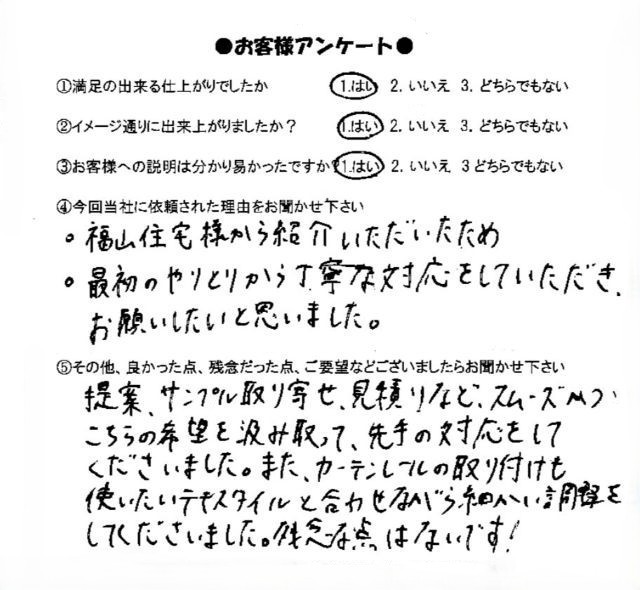 ●お客様アンケート●
①満足の出来る仕上がりでしたか 1.はい 2. いいえ 3. どちらでもない
②イメージ通りに出来上がりましたか？ 1.はい 2. いいえ 3. どちらでもない
③お客様への説明は分かり易かったですか？ 1.はい 2. いいえ 3 どちらでもない
④今回当社に依頼された理由をお聞かせ下さい
・福山住宅様から紹介いただいたため
・最初のやりとりから丁寧な対応をしていただき、
お願いしたいと思いました。
⑤その他、良かった点、残念だった点、ご要望などございましたらお聞かせ下さい
提案、サンプル取り寄せ、見積りなど、スムーズかつ
こちらの希望を汲み取って、先手の対応をして
くださいました。また、カーテンレールの取り付けも
使いたいテキスタイルと合わせながら細かい調整を
してくださいました。残念な点はないです！